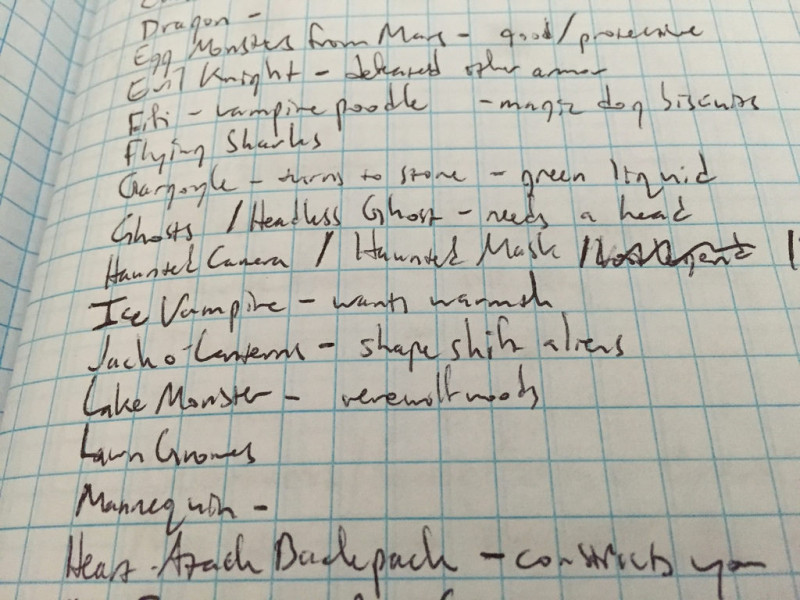 Dragon -
Egg Monsters from Mars - good/protective
Evil Knight - defeated other armor
Fifi - vampire poodle - magic dog biscuits
Flying Sharks
Gargoyle - turns to stone - green liquid
Ghosts / Headless Ghost - needs a head
Haunted Camera / Haunted Mask /
Ice Vampire - wants warmth
Jack-o-Lanterns - shape shift aliens
Lake Monster - werewolf woods
Lawn Gnomes
Mannequin -
Heart-Attack Backpack - constricts you